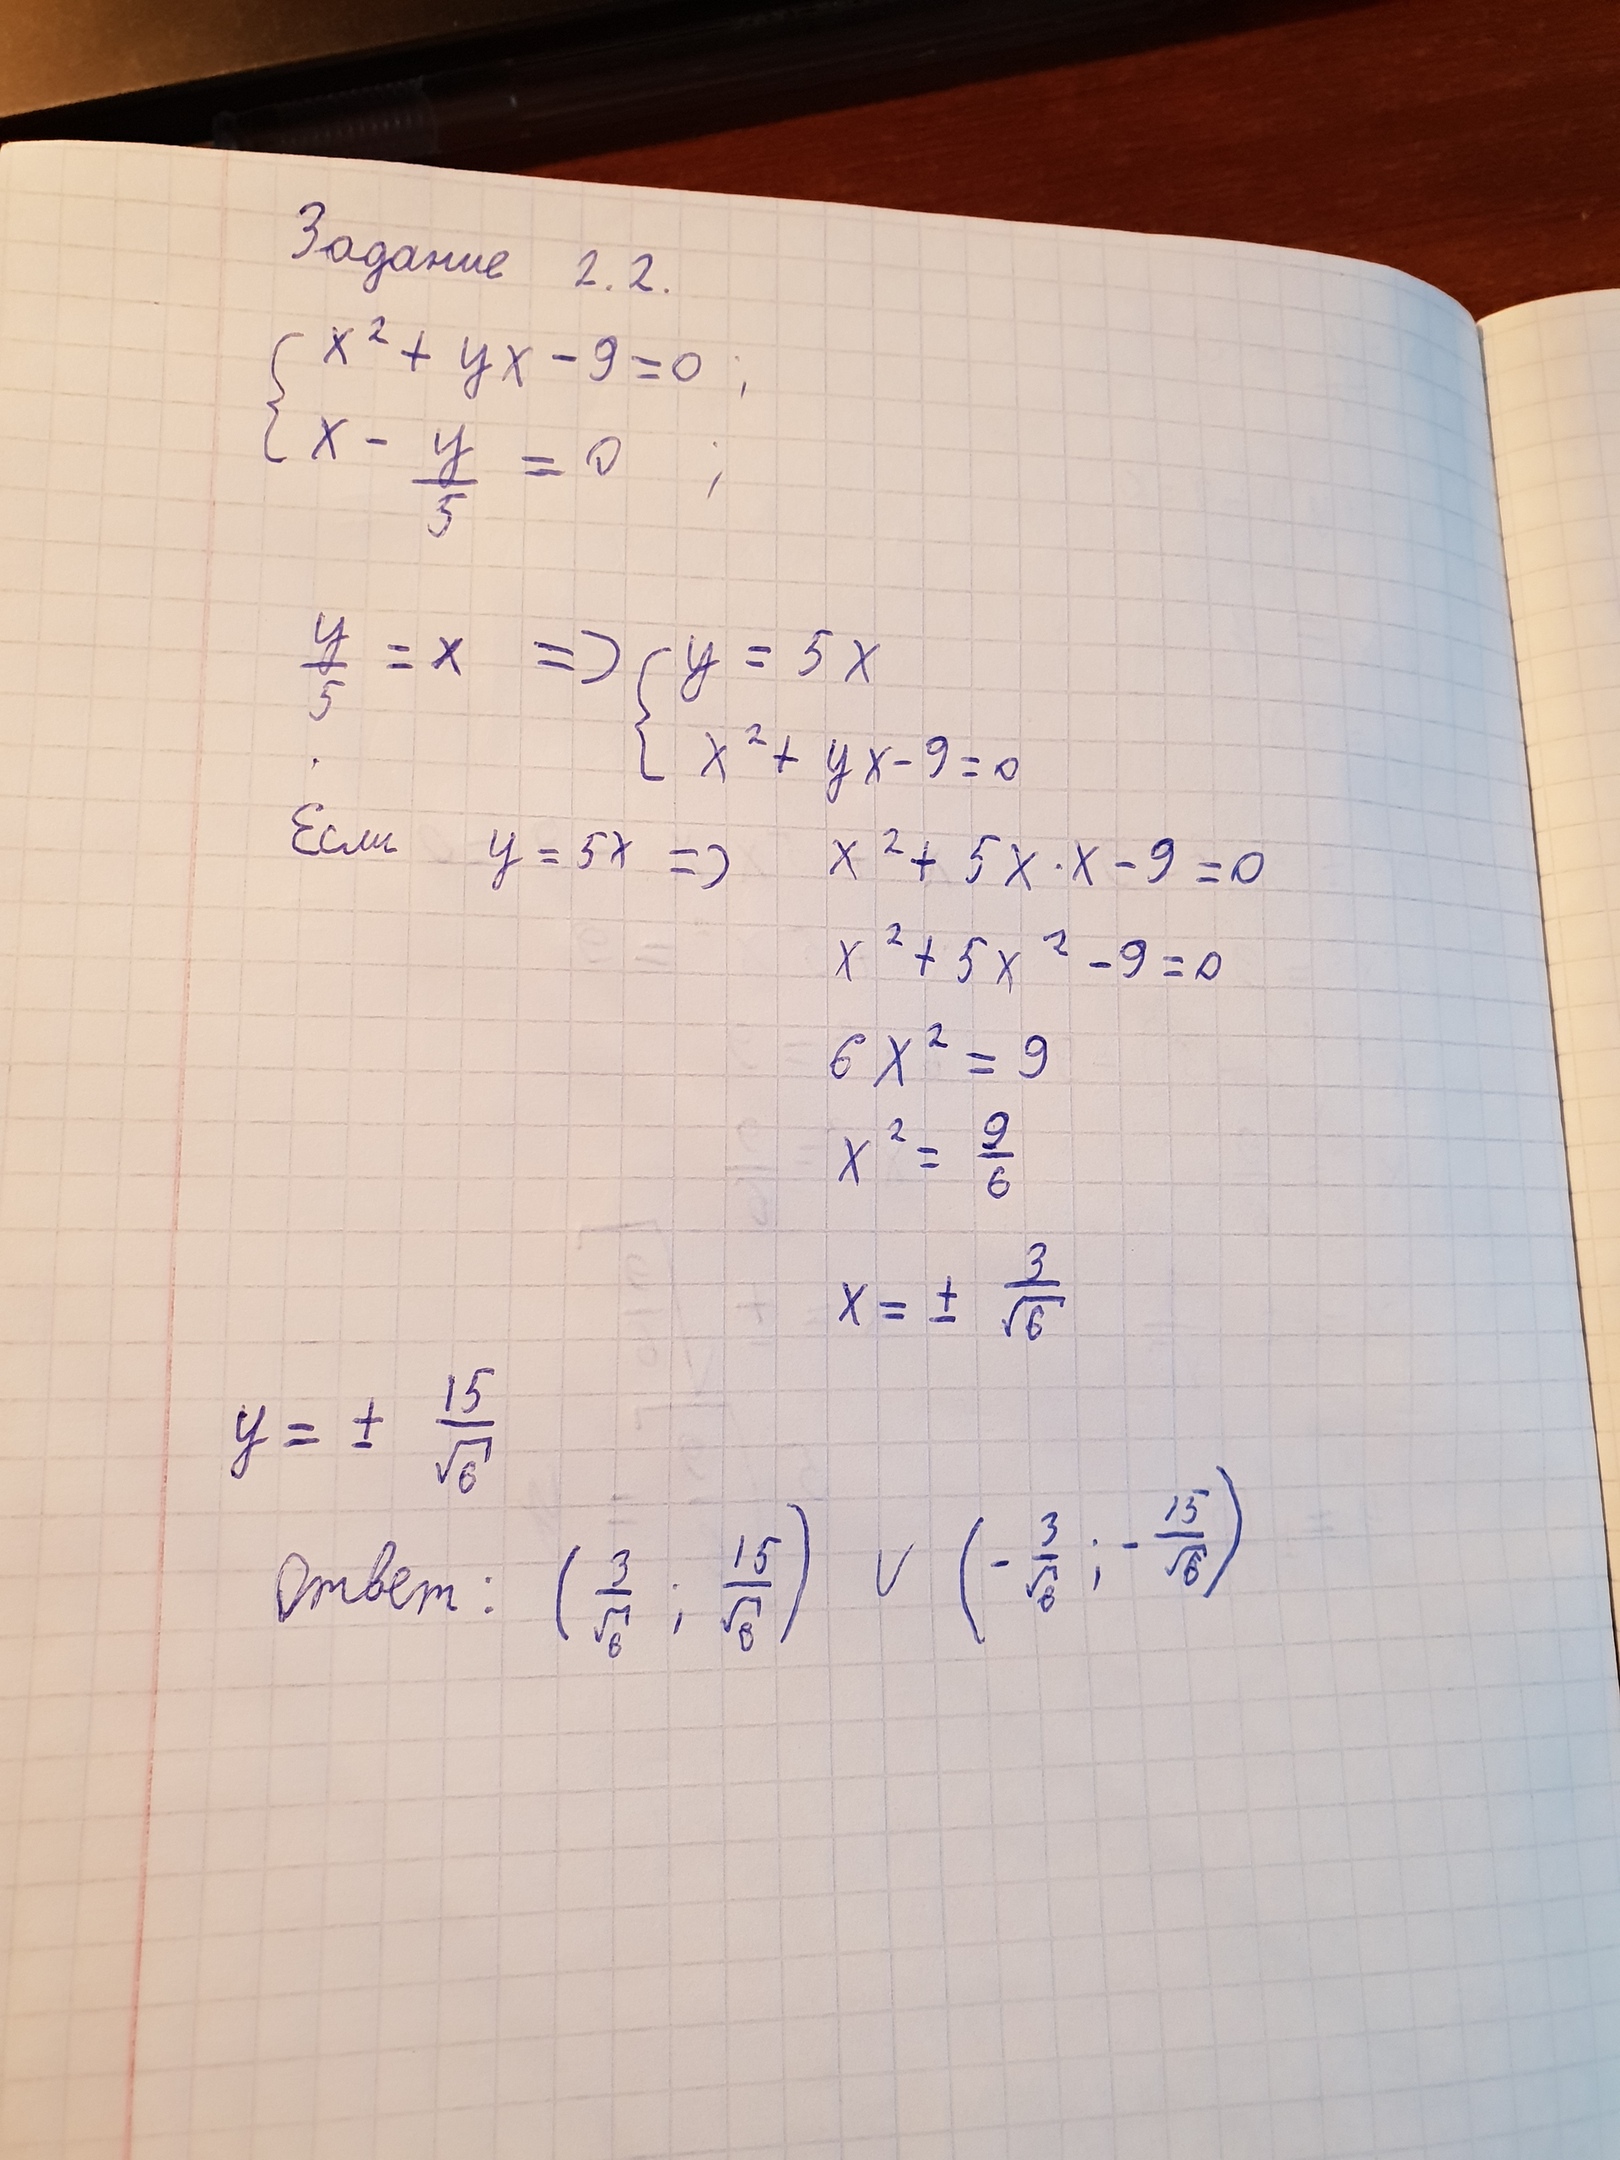 Задание 2.2.
{ x² + yx - 9 = 0 ;
{ x - y/5 = 0 ;
y/5 = x => { y = 5x
{ x² + yx - 9 = 0
Если y = 5x => x² + 5x · x - 9 = 0
x² + 5x² - 9 = 0
6x² = 9
x² = 9/6
x = ± 3/√6
y = ± 15/√6
Ответ: (3/√6 ; 15/√6) ∨ (-3/√6 ; -15/√6)